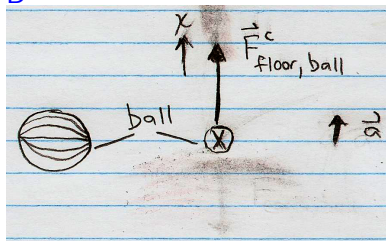 x
F⃗ᶜ floor, ball
ball
X
a⃗